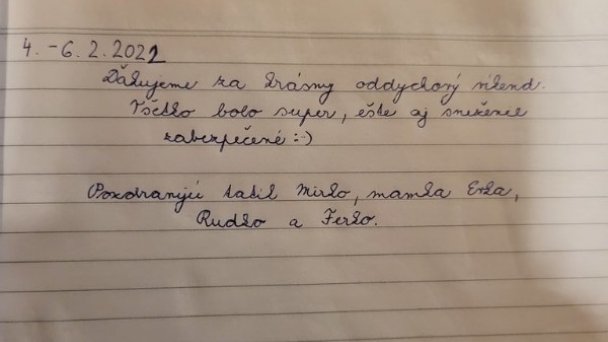 4. - 6. 2. 2022
Ďakujeme za krásny oddychový víkend.
Všetko bolo super, ešte aj sneženie
zabezpečené :-)
Pozdravujú tatik Mirko, mamka Erka,
Rudko a Ferko.